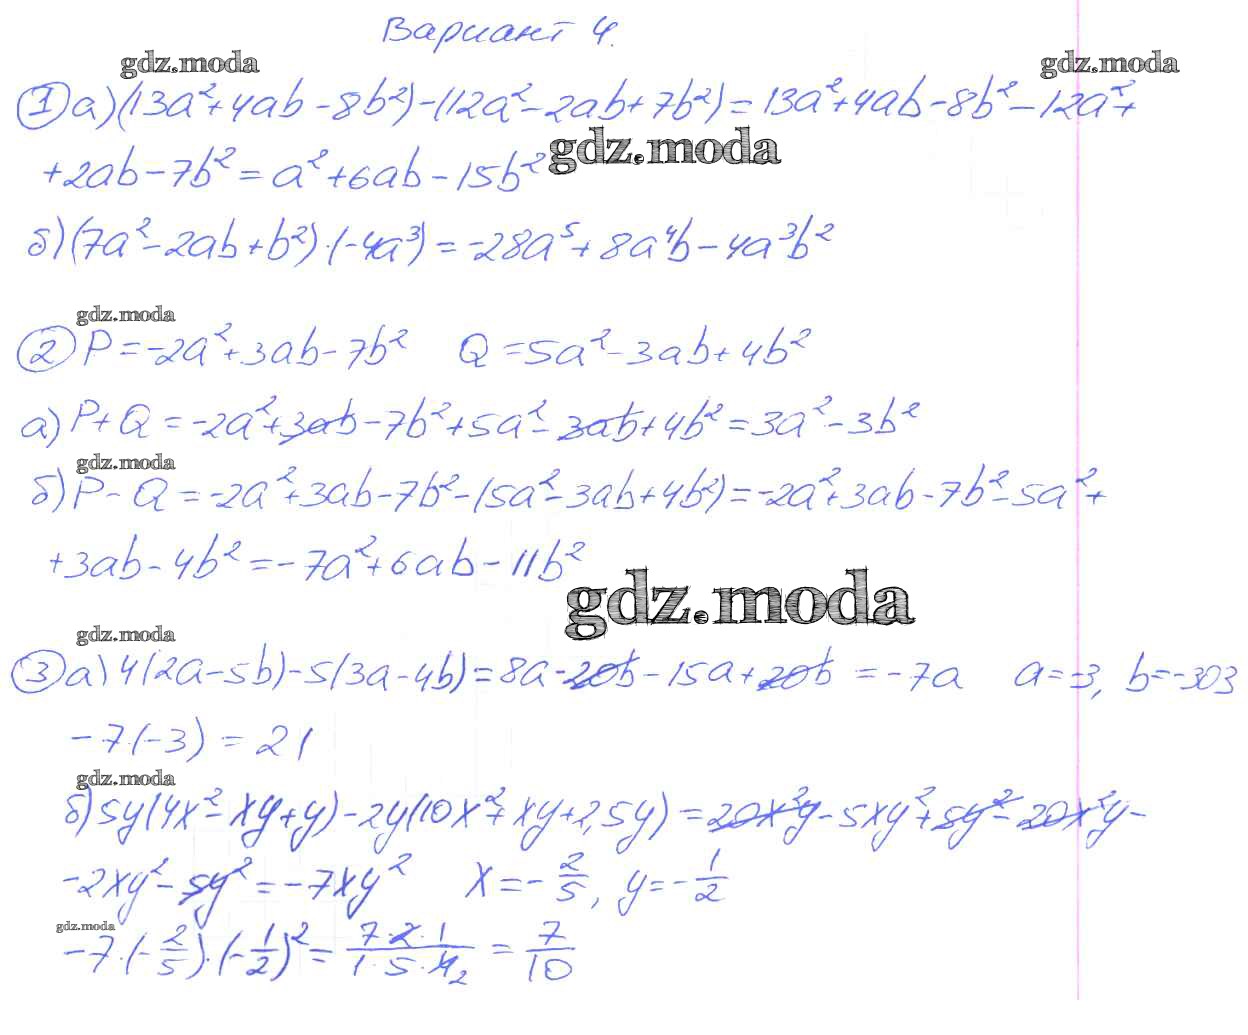 Вариант 4.
gdz.moda gdz.moda
① а) (13a²+4ab-8b²)-(12a²-2ab+7b²)=13a²+4ab-8b²-12a²+
+2ab-7b²=a²+6ab-15b² gdz.moda
б) (7a²-2ab+b²)·(-4a³)=-28a⁵+8a⁴b-4a³b²
gdz.moda
② P=-2a²+3ab-7b² Q=5a²-3ab+4b²
а) P+Q=-2a²+3ab-7b²+5a²-3ab+4b²=3a²-3b²
gdz.moda
б) P-Q=-2a²+3ab-7b²-(5a²-3ab+4b²)=-2a²+3ab-7b²-5a²+
+3ab-4b²=-7a²+6ab-11b²
gdz.moda
gdz.moda
③ а) 4(2a-5b)-5(3a-4b)=8a-20b-15a+20b=-7a a=-3, b=-303
-7·(-3)=21
gdz.moda
б) 5y(4x²-xy+y)-2y(10x²+xy+2,5y)=20x²y-5xy²+5y²-20x²y-
-2xy²-5y²=-7xy² x=-2/5, y=-1/2
gdz.moda
-7·(-2/5)·(-1/2)²=7·2·1/1·5·4₂=7/10